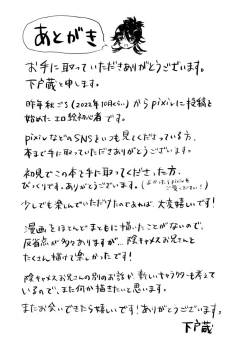 あとがき
お手に取っていただきありがとうございます。
下戸蔵と申します。
昨年秋ごろ(2022年10月くらい)からpixivに投稿を
始めたエロ絵初心者です。
pixivなどのSNSをいつも見てくださっている方、
本まで手に取っていただきありがとうございます。
初見でこの本を手に取ってくださった方、
びっくりです。ありがとうございます。(よかったらpixivも
ご覧ください!)
少しでも楽しんでいただけたのであれば、大変嬉しいです!
漫画をほとんどまともに描いたことがないので、
反省点が多々ありますが…陰キャメスお兄さんを
たくさん描けて楽しかった!
陰キャメスお兄さんの別のお話や、新しいキャラクターも考えて
いるので、また何か描きたいと思います。
またお会いできたら嬉しいです!ありがとうございます。
下戸蔵